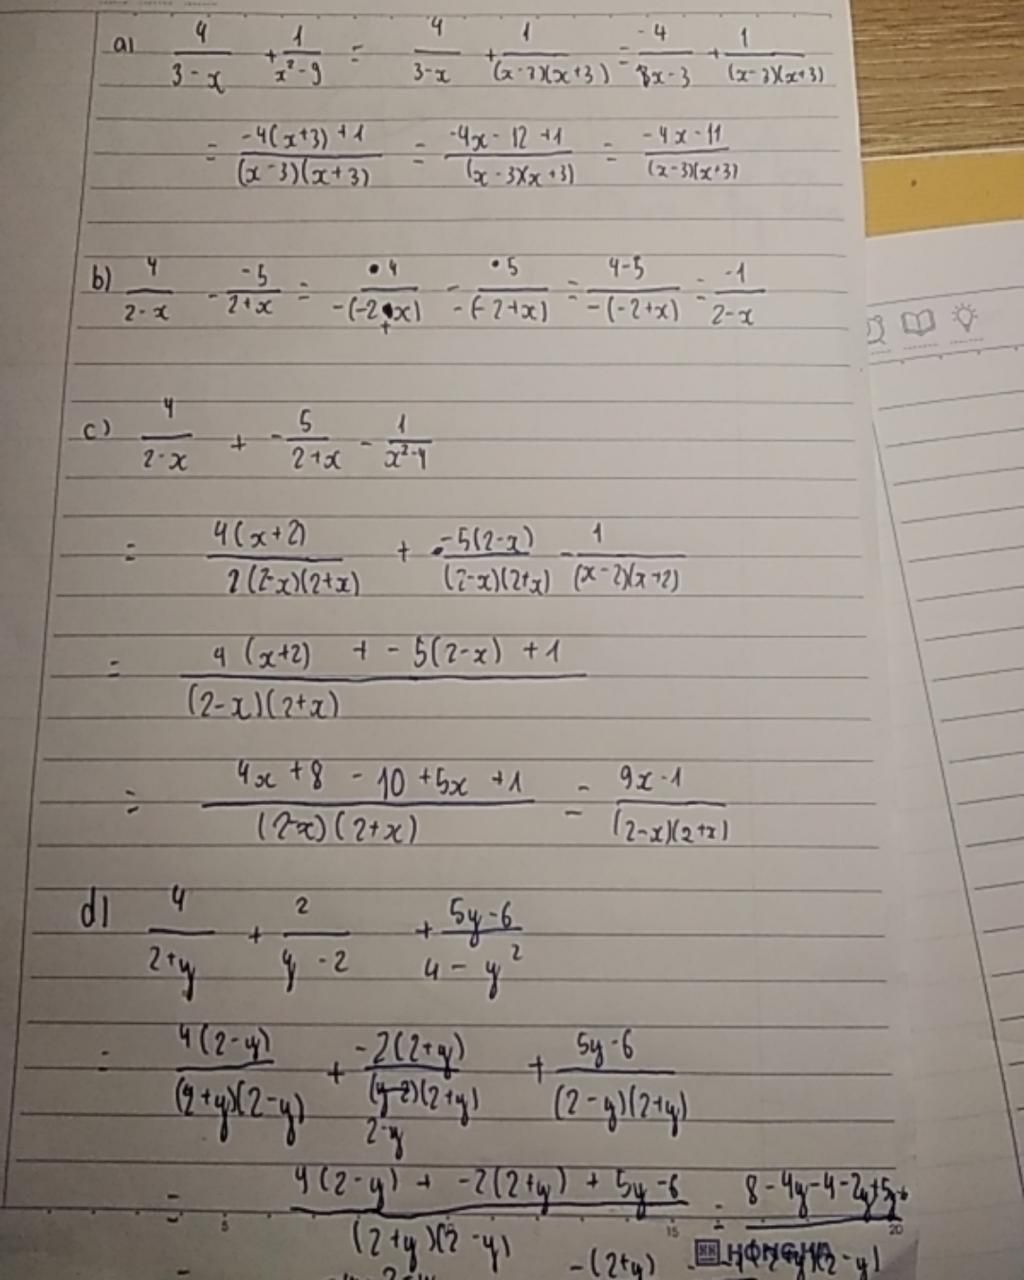 a) 4/(3-x) + 1/(x²-9) = 4/(3-x) + 1/((x-3)(x+3)) = -4/(x-3) + 1/((x-3)(x+3))
= (-4(x+3)+1)/((x-3)(x+3)) = (-4x-12+1)/((x-3)(x+3)) = (-4x-11)/((x-3)(x+3))
b) 4/(2-x) - -5/(2+x) = 4/(-(-2+x)) - 5/(-(-2+x)) = (4-5)/(-(-2+x)) = -1/(2-x)
c) 4/(2-x) + -5/(2+x) - 1/(x²-4)
= 4(x+2)/(2(2-x)(2+x)) + -5(2-x)/((2-x)(2+x)) - 1/((x-2)(x+2))
= (4(x+2) + -5(2-x) +1)/((2-x)(2+x))
= (4x+8-10+5x+1)/((2-x)(2+x)) = (9x-1)/((2-x)(2+x))
d) 4/(2+y) + 2/(y-2) + (5y-6)/(4-y²)
= 4(2-y)/((2+y)(2-y)) + -2(2+y)/((2-y)(2+y)) + (5y-6)/((2-y)(2+y))
= (4(2-y) + -2(2+y) + 5y-6)/((2+y)(2-y)) = (8-4y-4-2y+5y-6)/((2+y)(2-y))
5 15 20
HONG HA
= -(2+y)